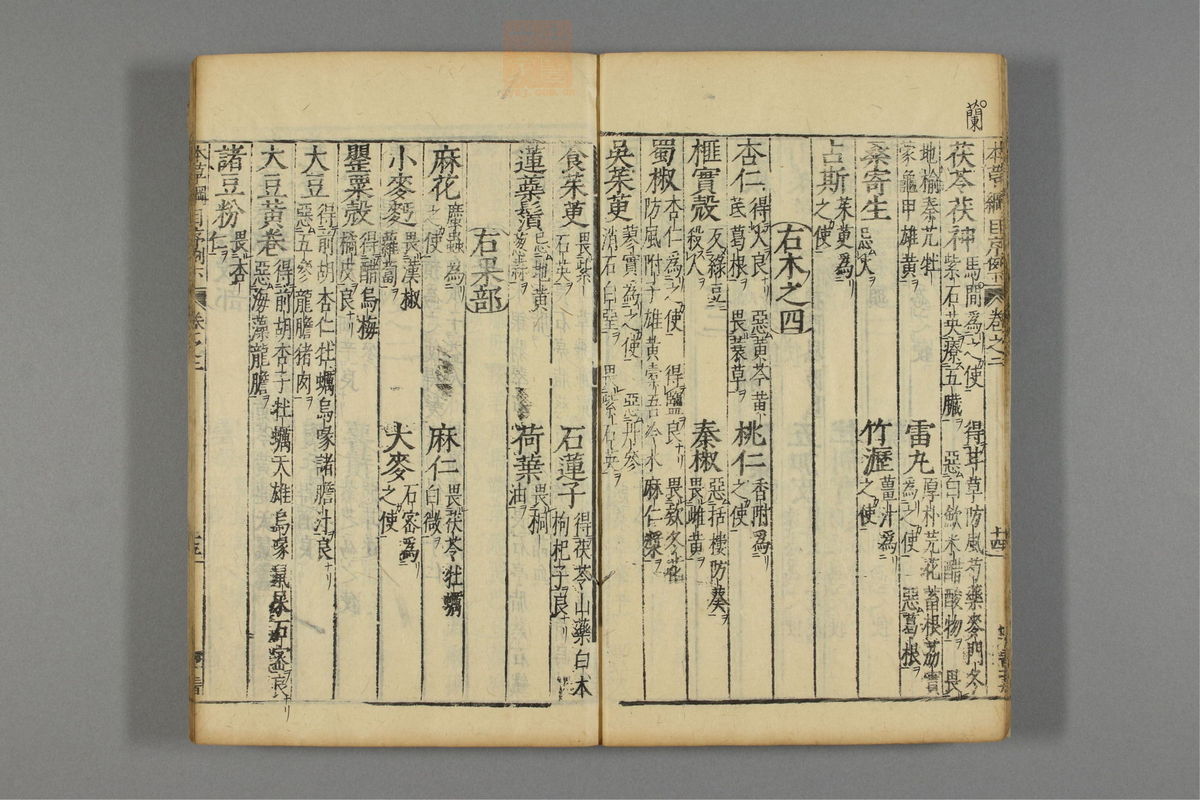 蘭
茯苓茯神 馬間爲之使 得甘草防風芍藥麥門冬
紫石英療五臟 惡白斂米醋酸物 畏
地榆秦艽牡
蒙龜甲雄黃
雷丸 厚朴芫花蓄根荔實
爲之使 惡葛根
桑寄生 忌火
竹瀝 薑汁爲
之使
占斯 茱萸爲
之使
右木之四
杏仁 得火良 惡黃芩黃
芪葛根 畏蓑草
桃仁 香附爲
之使
榧實殼 反綠豆
殺人
秦椒 惡括樓防葵
畏雌黃
蜀椒 杏仁爲之使 得鹽良 畏款冬花
防風附子雄黃橐吾冷水 麻仁漿
吳茱萸 蓼實爲之使 惡丹參
消石白堊 畏紫石英
食茱萸 畏紫
石英
石蓮子 得茯苓山藥白朮
枸杞子良
蓮蘂鬚 忌地黃
葱蒜
荷葉 畏桐
油
右果部
麻花 䗪蟲爲
之使
麻仁 畏茯苓牡蠣
白微
小麥麪 畏漢椒
蘿蔔
大麥 石蜜爲
之使
罌粟殼 得醋烏梅
橘皮良
大豆 得前胡杏仁牡蠣烏喙諸膽汁良
惡五參龍膽猪肉
大豆黃卷 得前胡杏子牡蠣天雄烏喙鼠屎石蜜良
惡海藻龍膽
諸豆粉 畏杏
仁